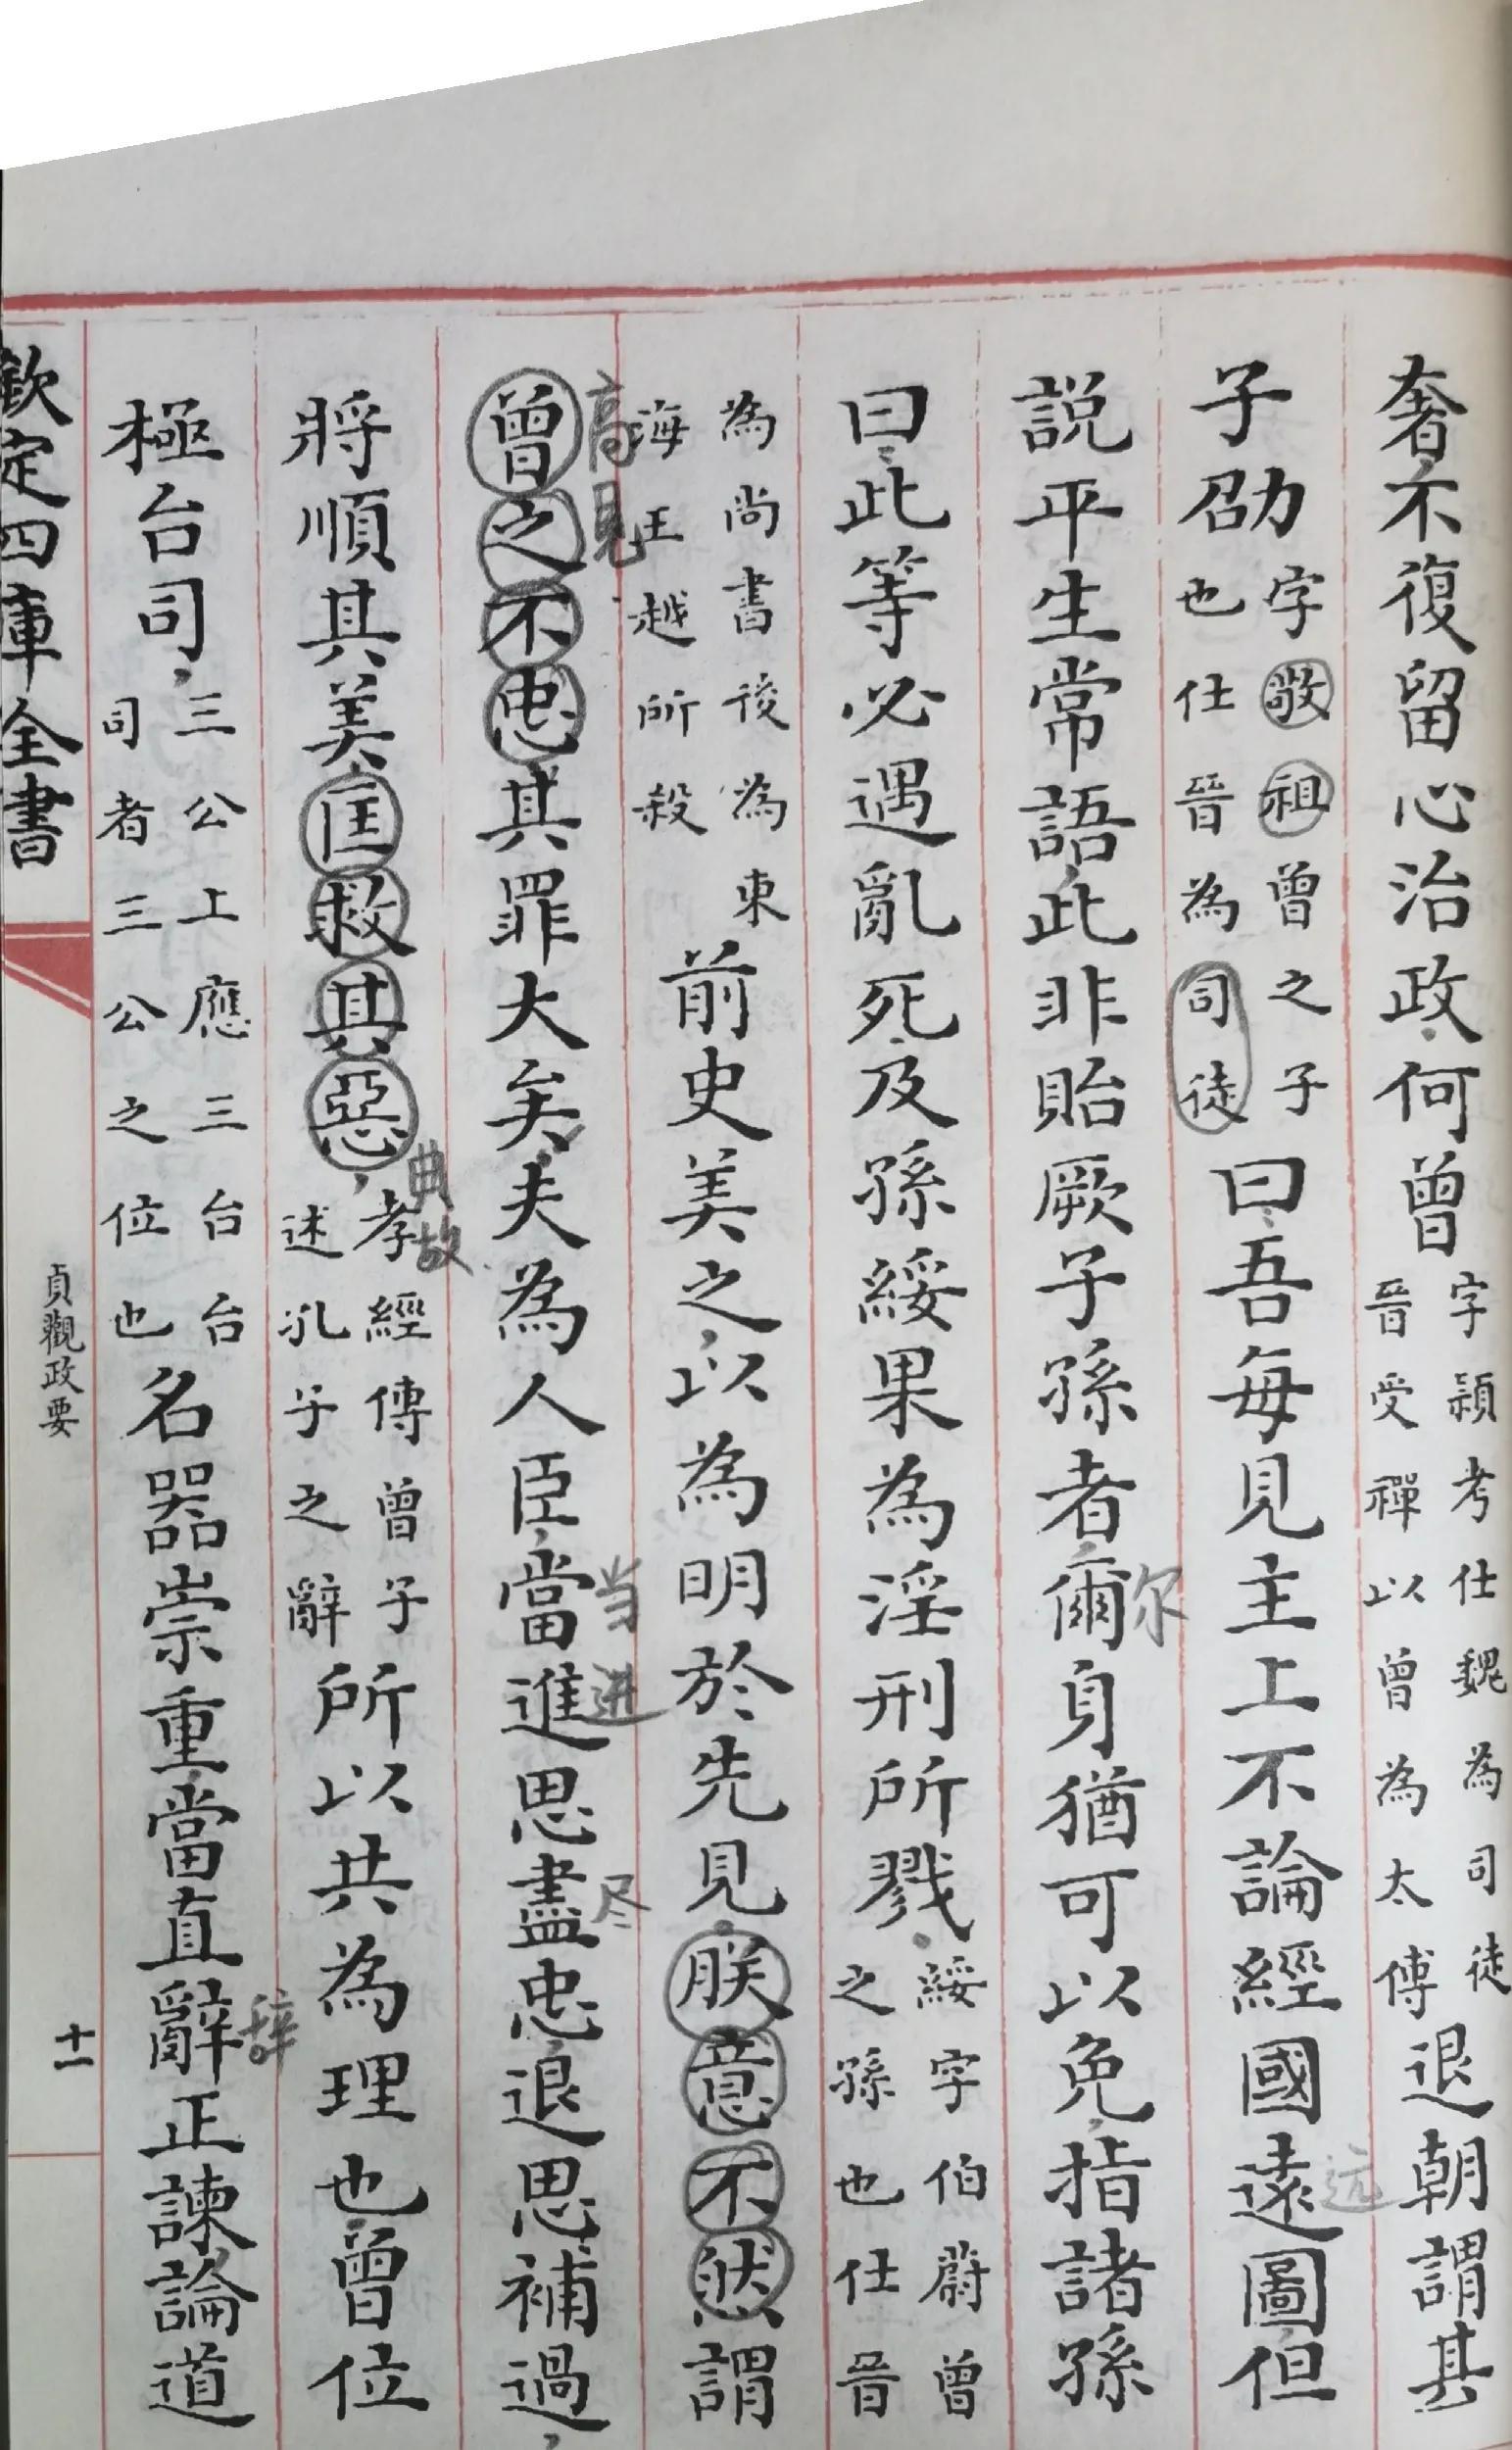 奢不復留心治政何曾字頴考仕魏為司徒晉受禪以曾為太傅退朝謂其
子劭字敬祖曾之子也仕晉為司徒曰吾每見主上不論經國遠圖但
远
説平生常語此非貽厥子孫者爾身猶可以免指諸孫
尔
曰此等必遇亂死及孫綏果為淫刑所戮綏字伯蔚曾之孫也仕晉
為尚書後為東海王越所殺前史美之以為明於先見朕意不然謂
高見
曾之不忠其罪大矣夫為人臣當進思盡忠退思補過
当
进
尽
將順其美匡救其惡孝經傳曾子述孔子之辭所以共為理也曾位
典故
極台司三公上應三台台司者三公之位也名器崇重當直辭正諫論道
辞
欽定四庫全書
貞觀政要
十一